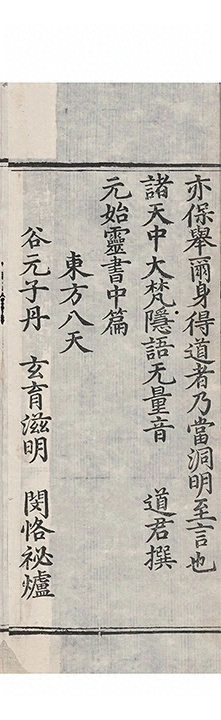 亦保舉爾身得道者乃當洞明至言也
諸天中大梵隱語无量音　道君撰
元始靈書中篇
東方八天
谷元子丹　玄育滋明　閔恪祕爐